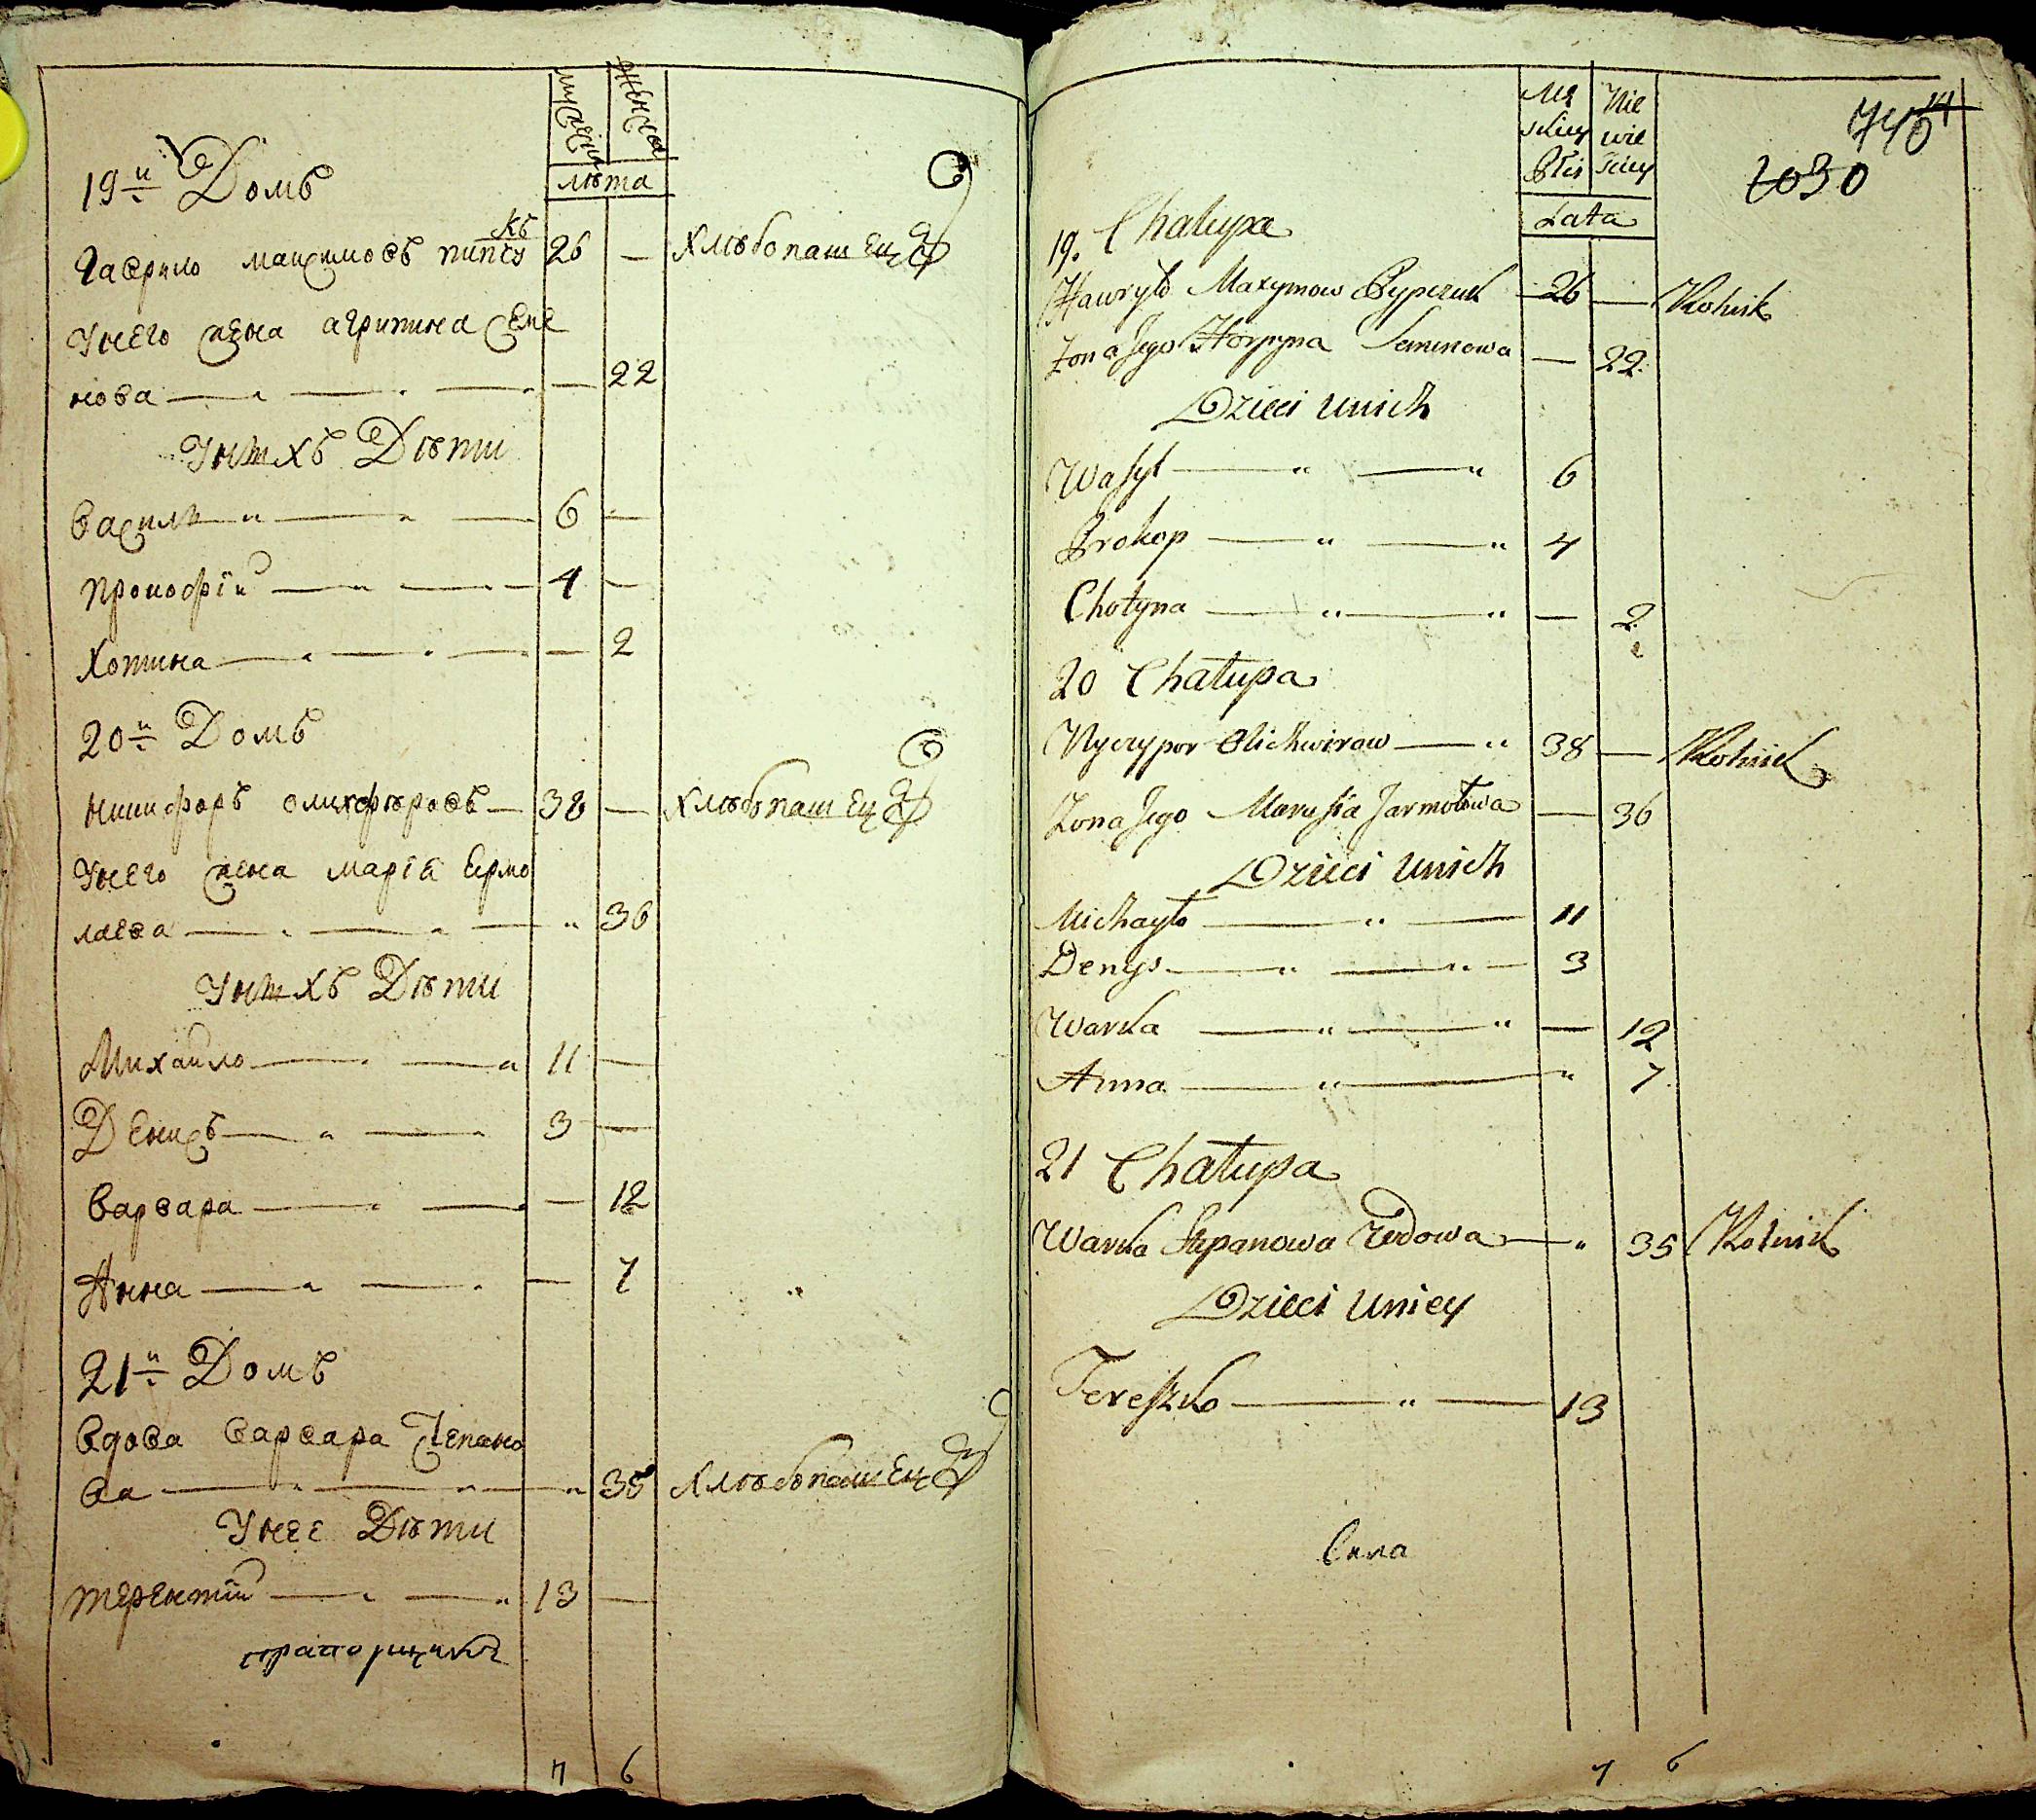 мужеска женска
лѣта
19й Домъ
Гаврило максимовъ пипчукъ 26 — хлѣбопашецъ
Унего жена агрипина Семе
нова — — — — 22
Унихъ Дѣти
Василь — — — 6 —
прокофій — — — 4 —
Хотина — — — — 2
20й Домъ
никифоръ олихфѣровъ — 38 — хлѣбопашецъ
Унего жена марія Ермо
лаева — — — 36
Унихъ Дѣти
Михайло — — 11 —
Денисъ — — 3 —
Варвара — — — 12
Анна — — — 7
21й Домъ
Вдова варвара Степано
ва — — — 35 хлѣбопашецъ
Унее Дѣти
терентій — — 13 —
прапорщикъ
7 6
Mę Nie
skiey wie
Płci sciey
Lata
740
2030
19. Chałupa
Hawryło Maxymow Pypczuk 26 — Rolnik
Zona Jego Horpyna Semenowa — 22
Dzieci Unich
Wasyl — — 6
Prokop — — 4
Chotyna — — — 2
20 Chałupa
Nyczypor Olichwirow — 38 — Rolnik
Zona Jego Marusia Jarmołowa — 36
Dzieci Unich
Michayło — — 11
Denys — — — 3
Warka — — — 12
Anna — — 7
21 Chałupa
Warka Stepanowa Wdowa — 35 Rolnik
Dzieci Uniey
Tereszko — — 13
Села
7 6